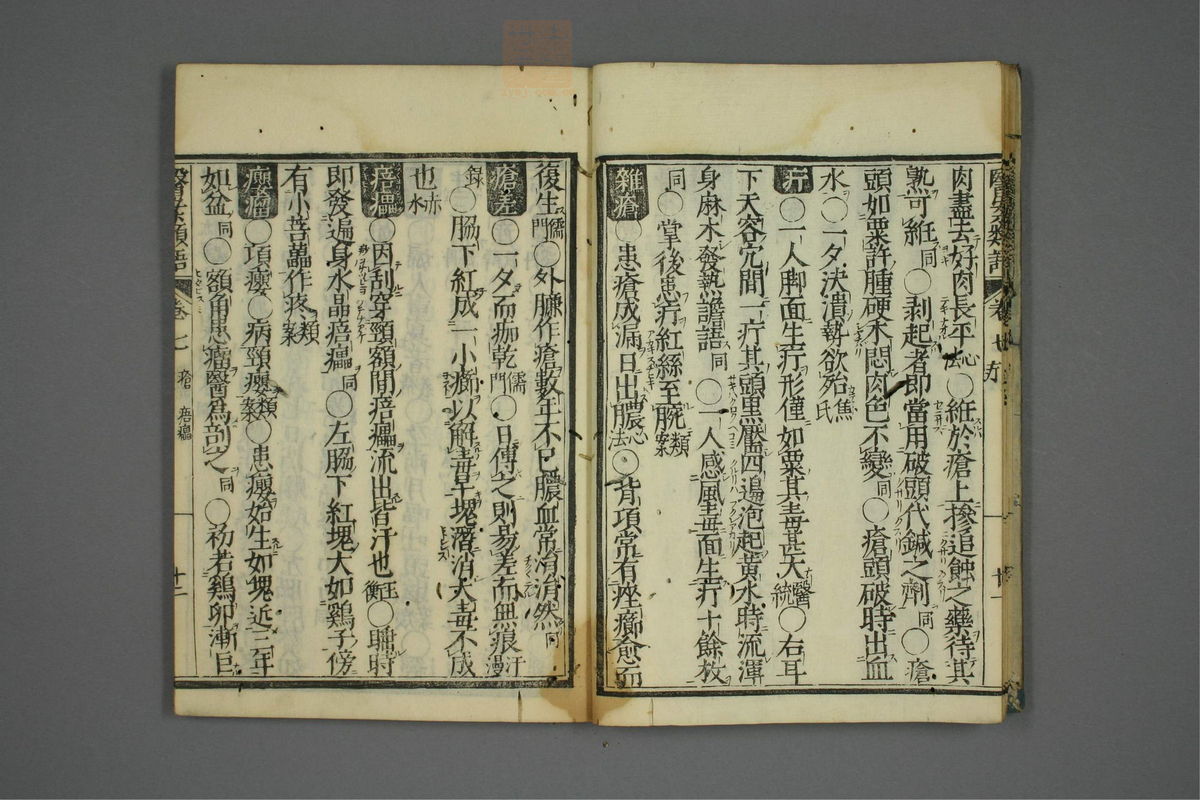 肉盡去好肉長平心法○紙於瘡上摻追蝕之藥待其
熟可紙同○剥起者即當用破頭代鍼之劑同○瘡
頭如粟許腫硬水悶肉色不變同○瘡頭破時出血
水○一夕決潰執欲殆焦氏
疔○一人脚面生疔形僅如粟其毒甚大醫統○右耳
下天容穴間一疔其頭黒壓四邉泡起黄水時流渾
身麻木發熱譫語同○一人感風毒面生疔十餘枚
同○掌後患疔紅絲至腕類案
雜瘡○患瘡成漏日出膿心法○背項常有痤癤愈而
復生儒門○外臁作瘡數年不已膿血常涓涓然同
瘡差○一夕而痂乾儒門○日傅之則易差而無痕汗漫
録○脇下紅成一小癤以解毒早塊漸消大毒不成
也赤水
痦㿔○因刮穿頸額間痦㿔流出皆汗也玉衡○睡時
即發遍身水晶痦㿔同○左脇下紅塊大如鶏子傍
有小菩蕌作疼類案
癭瘤○項癭○病頸癭類案○患癭始生如塊近三年
如盆同○額角患瘤醫爲剖之同○初若鶏卵漸巨
卷七 瘡 痦㿔 十二